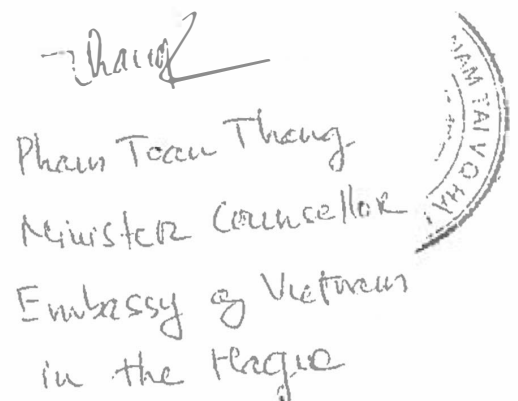 Thang
Pham Toan Thang
Minister Counsellor
Embassy of Vietnam
in the Hague
NAM TẠI VQ HÀ